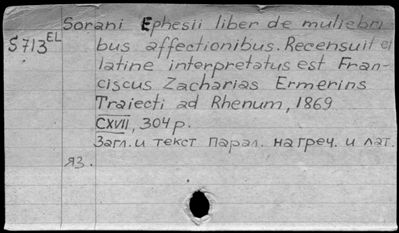 Sorani Ephesii liber de muliebri
S713 EL
bus affectionibus. Recensuit et
latine interpretatus est Fran-
ciscus Zacharias Ermerins
Traiecti ad Rhenum, 1869
CXVII, 304 p.
Загл. и текст парал. на греч. и лат.
яз.